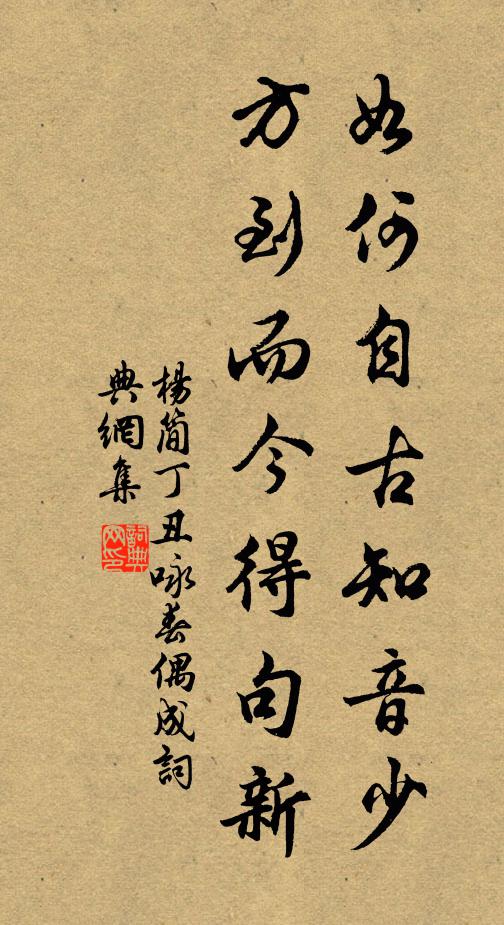 如何自古知音少
方到而今得句新
楊簡丁丑咏春偶成詞
典網集
詞典
网印